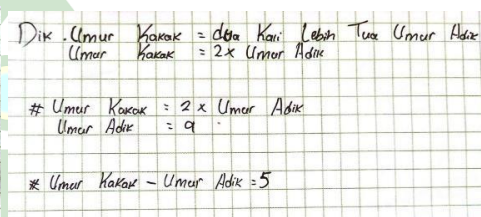 Dik . Umur Kakak = dua Kali Lebih Tua Umur Adik
Umur Kakak = 2x Umur Adik
# Umur Kakak = 2 x Umur Adik
Umur Adik = a
* Umur Kakak - Umur Adik = 5